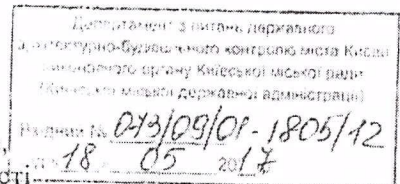 Департамент з питань державного
архітектурно-будівельного контролю міста Києва
виконавчого органу Київської міської ради
(Київської міської державної адміністрації)
Вхідний № 073/09/01-1805/12
18 05 2017